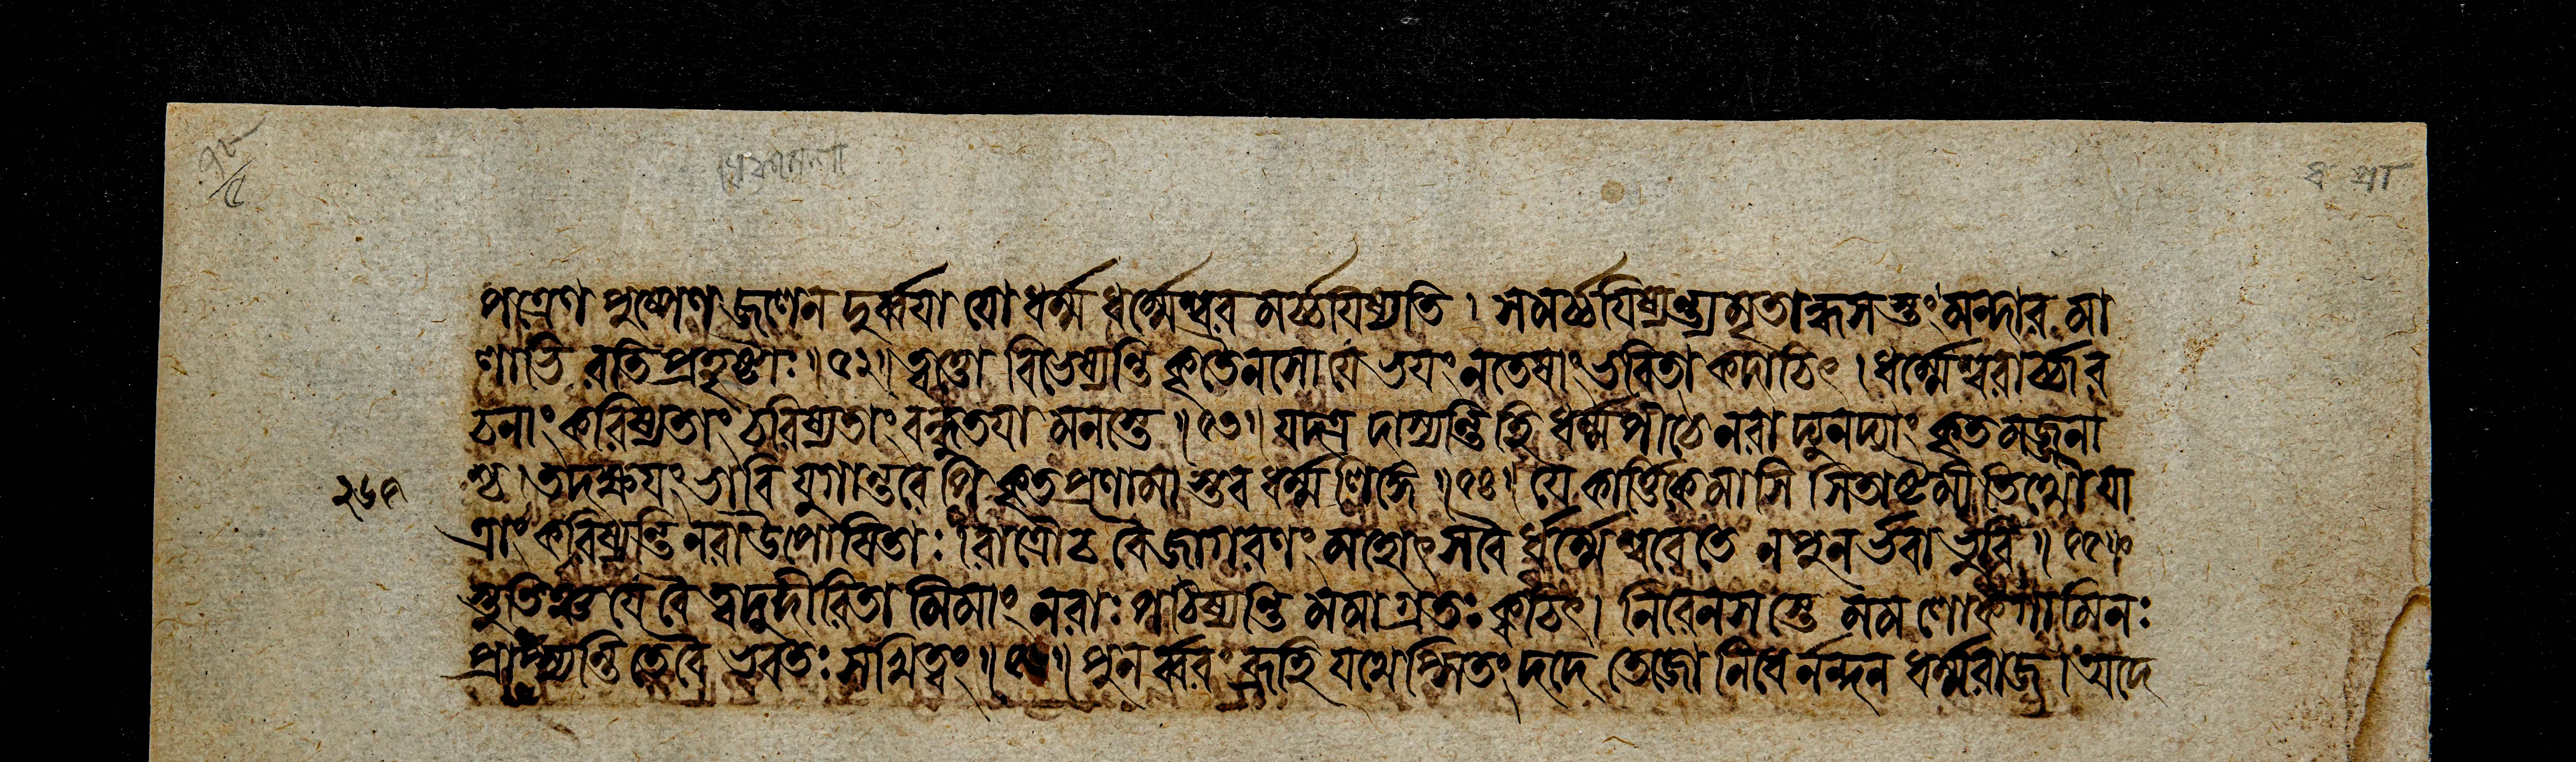 পত্রেণ পুষ্পেণ জলেন দুর্ব্বয়া যো ধর্ম্ম ধর্ম্মেশ্বর মর্চ্চয়িষ্যতি । সমর্চ্চয়িষ্যন্ত্যমৃতান্ধসস্তং মন্দার মা
লাভি রতি প্রহৃষ্টাঃ ॥ ৫২ ॥ ত্বত্তো বিভেষ্যন্তি কৃতৈনসো যে ভয়ং ন তেষাং ভবিতা কদাচিৎ । ধর্ম্মেশ্বরার্চ্চার
চনাং করিষ্যতাং হরিষ্যতাং বন্ধুতয়া মনস্তে ॥ ৫৩ ॥ যদত্র দাস্যন্তি হি ধর্ম্মপীঠে নরা দ্যুনদ্যাং কৃতমজ্জনা
শ্চ । তদক্ষয়ং ভাবি যুগান্তরে পি কৃতপ্রণামা স্তব ধর্ম্মলিঙ্গে ॥ ৫৪ ॥ যে কার্ত্তিকে মাসি সিতাষ্টমী তিথৌ যা
ত্রাং করিষ্যন্তি নরা উপোষিতাঃ । রাত্রৌ চ বৈ জাগরণং মহোৎসবৈ র্ধর্ম্মেশ্বরে তে ন পুনর্ভবা ভুবি ॥ ৫৫ ॥
স্তুতিঞ্চ যে বৈ ত্বদুদীরিতা মিমাং নরাঃ পঠিষ্যন্তি মমাগ্রতঃ ক্বচিৎ । নিরেনসস্তে মম লোকগামিনঃ
প্রাপ্স্যন্তি তে বৈ ভবতঃ সখিত্বং ॥ ৫৬ ॥ পুনর্ব্বরং ব্রূহি যথেপ্সিতং দদে তেজো নিধের্নন্দন ধর্ম্মরাজ । অদে